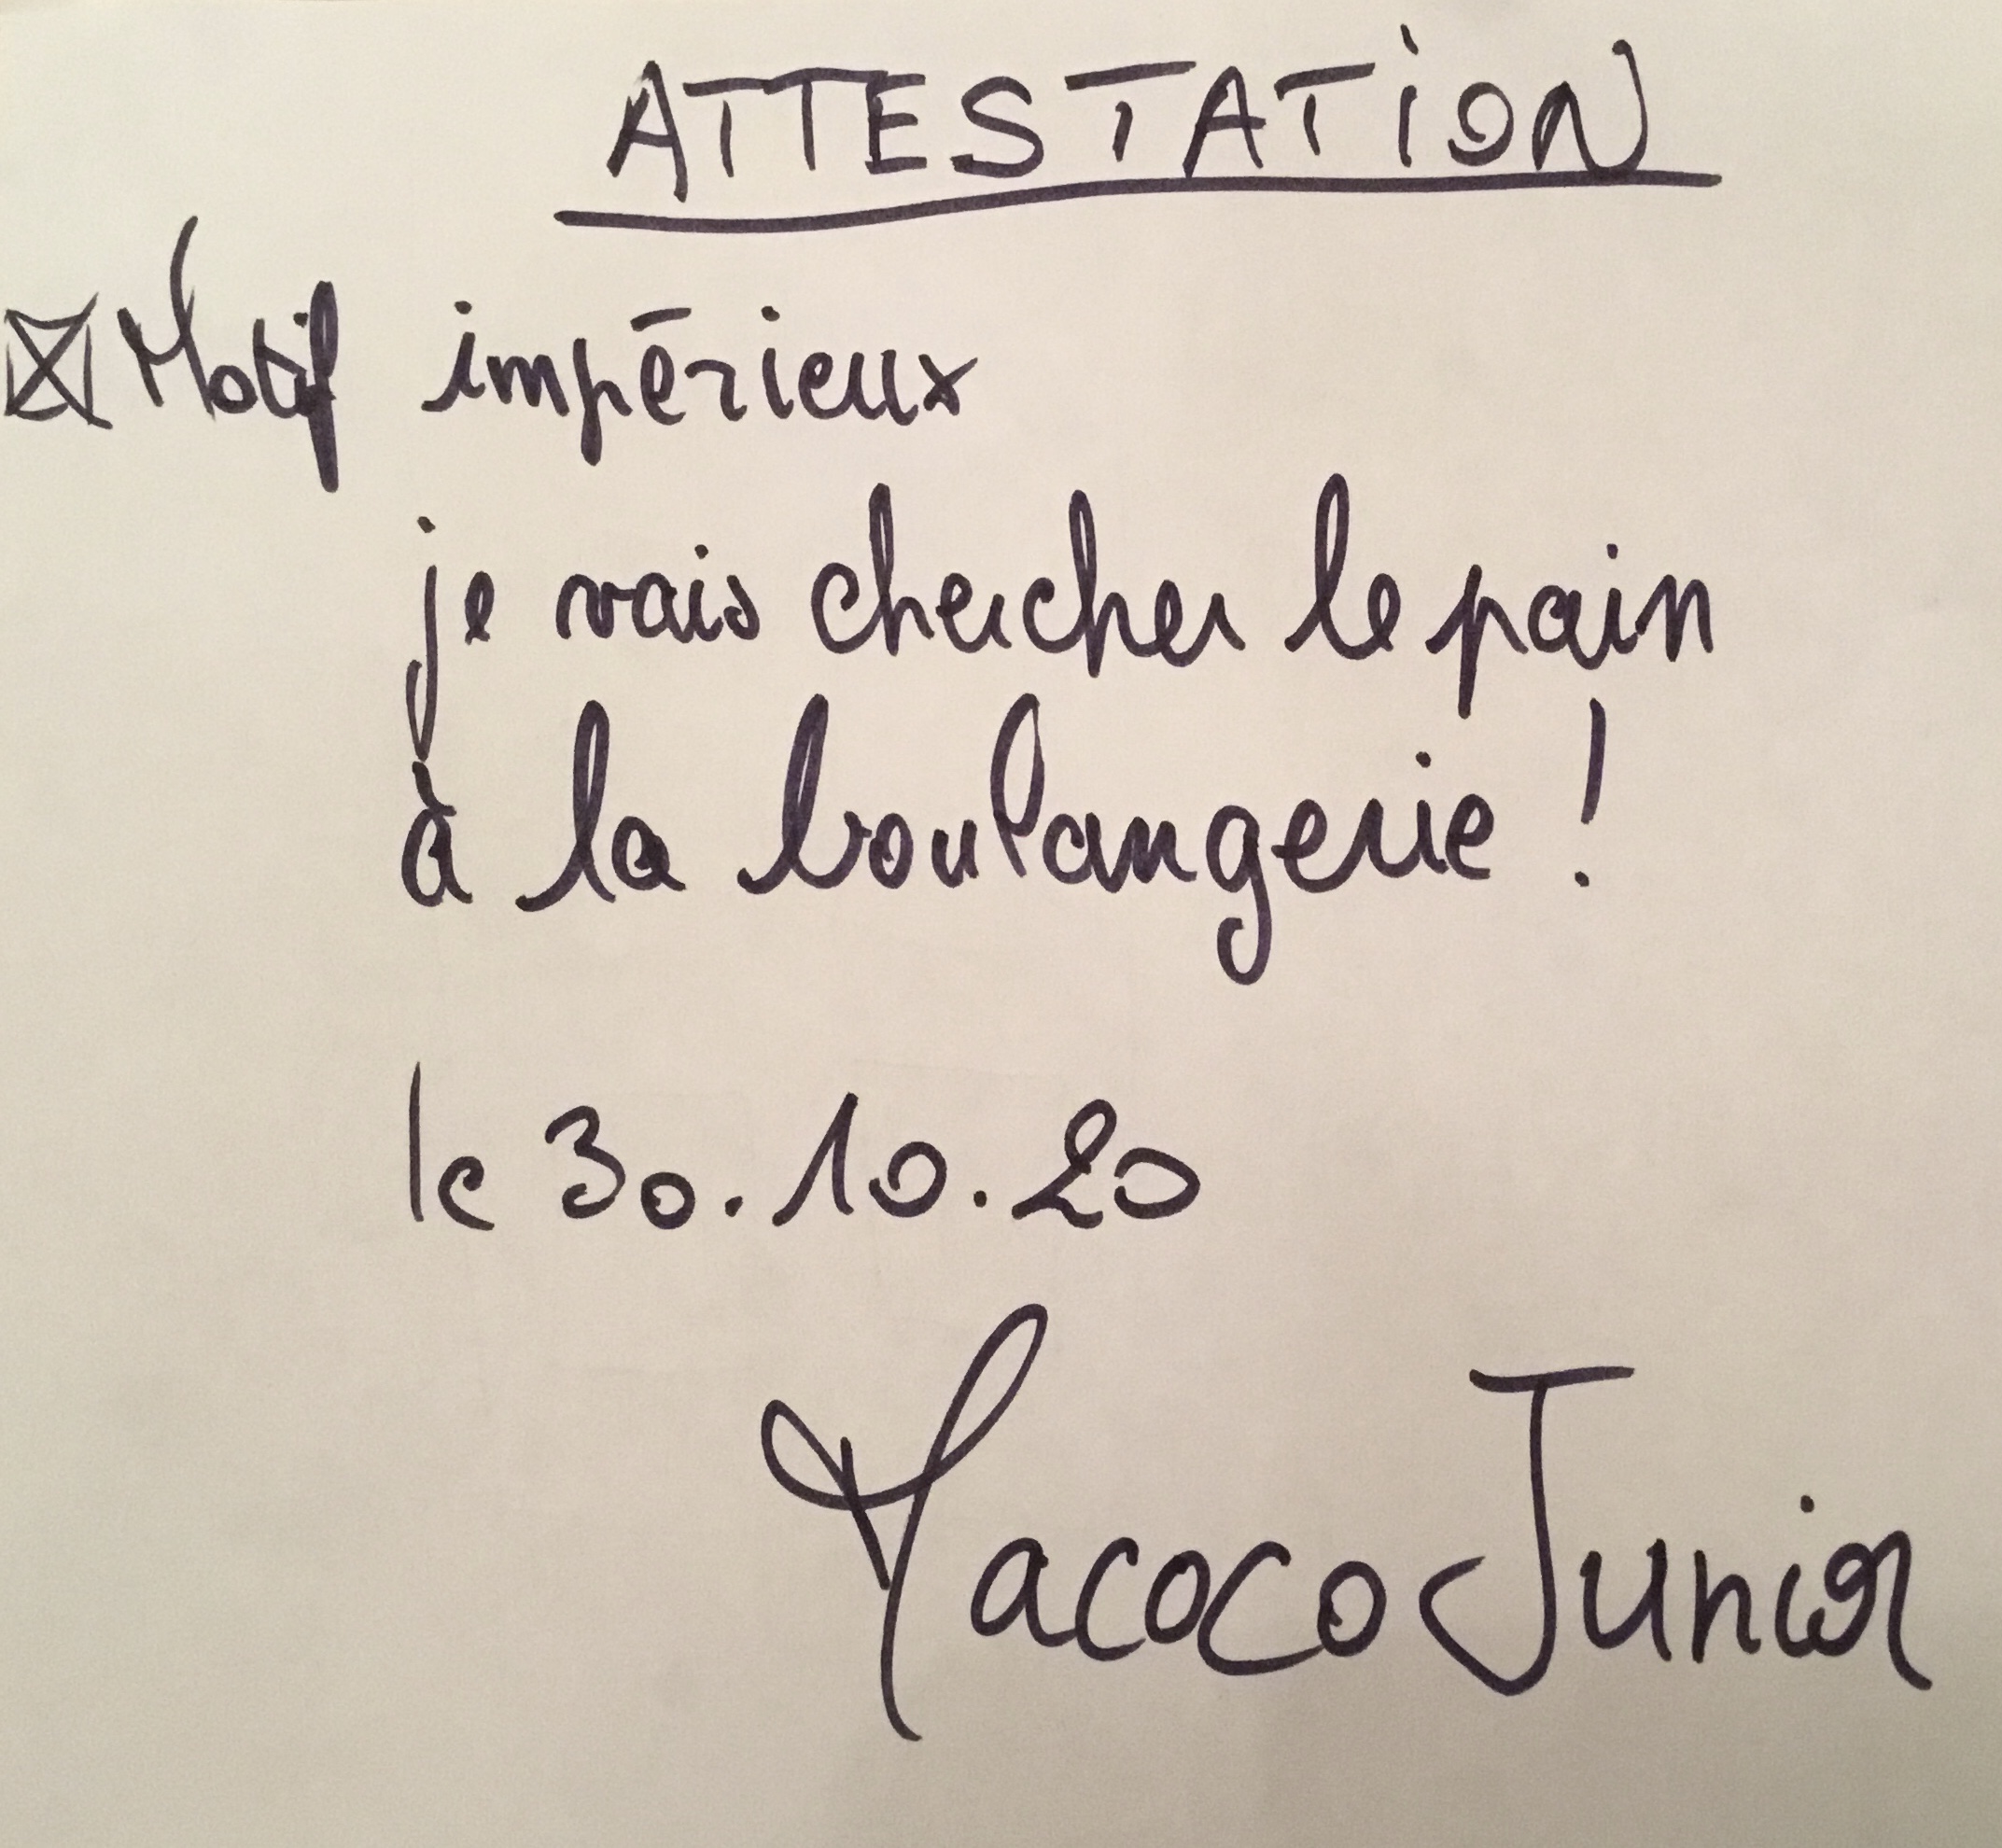 ATTESTATiON
☒ Motif impérieux
je vais chercher le pain
à la boulangerie !
le 30.10.20
Macoco Junior